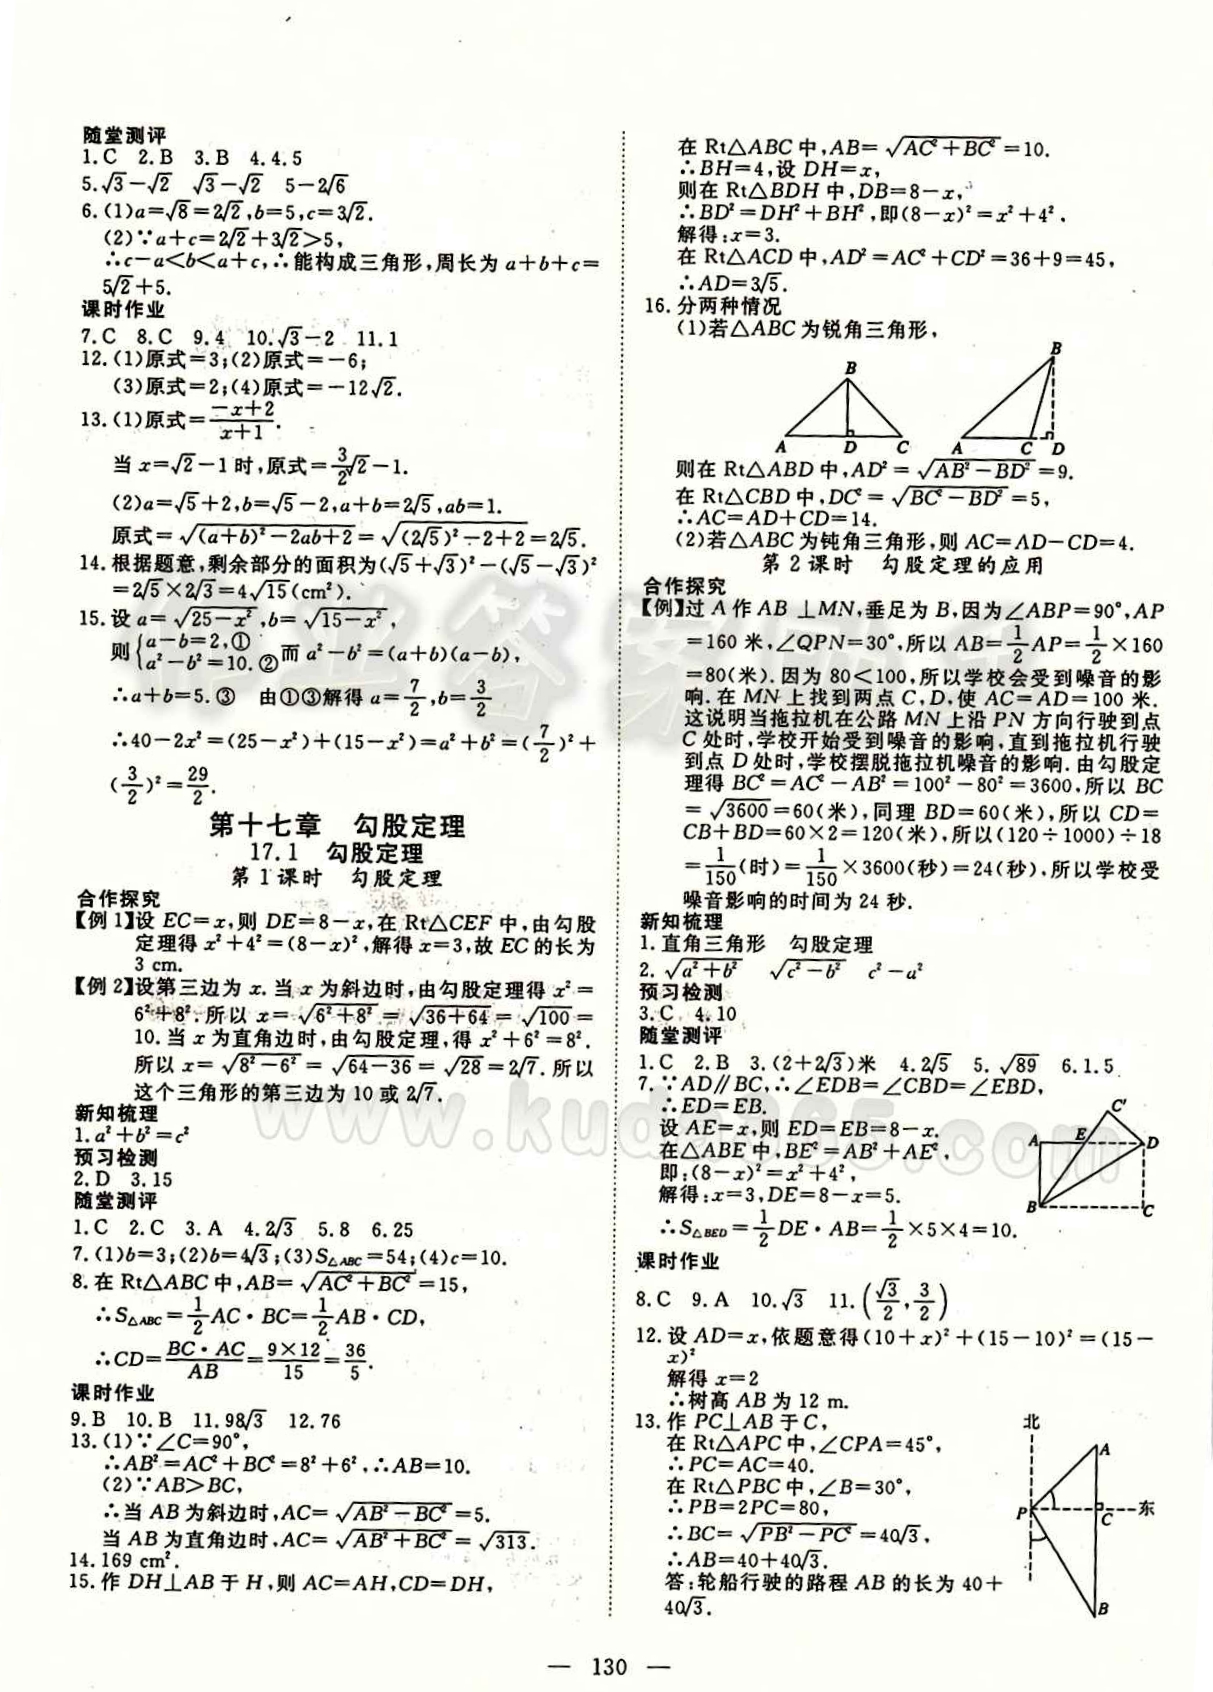 随堂测评
1.C 2.B 3.B 4.4.5
5.√3−√2 √3−√2 5−2√6
6.(1)a=√8=2√2,b=5,c=3√2.
(2)∵a+c=2√2+3√2>5,
∴c−a<b<a+c,∴能构成三角形,周长为a+b+c=
5√2+5.
课时作业
7.C 8.C 9.4 10.√3−2 11.1
12.(1)原式=3;(2)原式=−6;
(3)原式=2;(4)原式=−12√2.
13.(1)原式=(−x+2)/(x+1).
当x=√2−1时,原式=3/2√2−1.
(2)a=√5+2,b=√5−2,a+b=2√5,ab=1.
原式=√((a+b)²−2ab+2)=√((2√5)²−2+2)=2√5.
14.根据题意,剩余部分的面积为(√5+√3)²−(√5−√3)²
=2√5×2√3=4√15(cm²).
15.设a=√(25−x²),b=√(15−x²),
则{a−b=2,① a²−b²=10.②而a²−b²=(a+b)(a−b),
∴a+b=5.③ 由①③解得a=7/2,b=3/2
∴40−2x²=(25−x²)+(15−x²)=a²+b²=(7/2)²+
(3/2)²=29/2.
第十七章 勾股定理
17.1 勾股定理
第1课时 勾股定理
合作探究
【例1】设EC=x,则DE=8−x,在Rt△CEF中,由勾股
定理得x²+4²=(8−x)²,解得x=3,故EC的长为
3 cm.
【例2】设第三边为x.当x为斜边时,由勾股定理得x²=
6²+8².所以x=√(6²+8²)=√(36+64)=√100=
10.当x为直角边时,由勾股定理,得x²+6²=8².
所以x=√(8²−6²)=√(64−36)=√28=2√7.所以
这个三角形的第三边为10或2√7.
新知梳理
1.a²+b²=c²
预习检测
2.D 3.15
随堂测评
1.C 2.C 3.A 4.2√3 5.8 6.25
7.(1)b=3;(2)b=4√3;(3)S△ABC=54;(4)c=10.
8.在Rt△ABC中,AB=√(AC²+BC²)=15,
∴S△ABC=1/2AC·BC=1/2AB·CD,
∴CD=(BC·AC)/AB=(9×12)/15=36/5.
课时作业
9.B 10.B 11.98√3 12.76
13.(1)∵∠C=90°,
∴AB²=AC²+BC²=8²+6²,∴AB=10.
(2)∵AB>BC,
∴当AB为斜边时,AC=√(AB²−BC²)=5.
当AB为直角边时,AC=√(AB²+BC²)=√313.
14.169 cm².
15.作DH⊥AB于H,则AC=AH,CD=DH,
在Rt△ABC中,AB=√(AC²+BC²)=10.
∴BH=4,设DH=x,
则在Rt△BDH中,DB=8−x,
∴BD²=DH²+BH²,即(8−x)²=x²+4².
解得:x=3.
在Rt△ACD中,AD²=AC²+CD²=36+9=45,
∴AD=3√5.
16.分两种情况
(1)若△ABC为锐角三角形,
B
A D C
B
A C D
则在Rt△ABD中,AD²=√(AB²−BD²)=9.
在Rt△CBD中,DC²=√(BC²−BD²)=5,
∴AC=AD+CD=14.
(2)若△ABC为钝角三角形,则AC=AD−CD=4.
第2课时 勾股定理的应用
合作探究
【例】过A作AB⊥MN,垂足为B,因为∠ABP=90°,AP
=160米,∠QPN=30°,所以AB=1/2AP=1/2×160
=80(米).因为80<100,所以学校会受到噪音的影
响.在MN上找到两点C,D,使AC=AD=100米.
这说明当拖拉机在公路MN上沿PN方向行驶到点
C处时,学校开始受到噪音的影响,直到拖拉机行驶
到点D处时,学校摆脱拖拉机噪音的影响.由勾股定
理得BC²=AC²−AB²=100²−80²=3600,所以BC
=√3600=60(米),同理BD=60(米),所以CD=
CB+BD=60×2=120(米),所以(120÷1000)÷18
=1/150(时)=1/150×3600(秒)=24(秒),所以学校受
噪音影响的时间为24秒.
新知梳理
1.直角三角形 勾股定理
2.√(a²+b²) √(c²−b²) c²−a²
预习检测
3.C 4.10
随堂测评
1.C 2.B 3.(2+2√3)米 4.2√5 5.√89 6.1.5
7.∵AD∥BC,∴∠EDB=∠CBD=∠EBD,
∴ED=EB.
设AE=x,则ED=EB=8−x.
在△ABE中,BE²=AB²+AE²,
即:(8−x)²=x²+4²,
解得:x=3,DE=8−x=5.
∴S△BED=1/2DE·AB=1/2×5×4=10.
C′
A E D
B C
课时作业
8.C 9.A 10.√3 11.(√3/2,3/2)
12.设AD=x,依题意得(10+x)²+(15−10)²=(15−
x)²
解得x=2
∴树高AB为12 m.
13.作PC⊥AB于C,
在Rt△APC中,∠CPA=45°,
∴PC=AC=40.
在Rt△PBC中,∠B=30°,
∴PB=2PC=80,
∴BC=√(PB²−PC²)=40√3,
∴AB=40+40√3.
答:轮船行驶的路程AB的长为40+
40√3.
北
A
P C 东
B
— 130 —